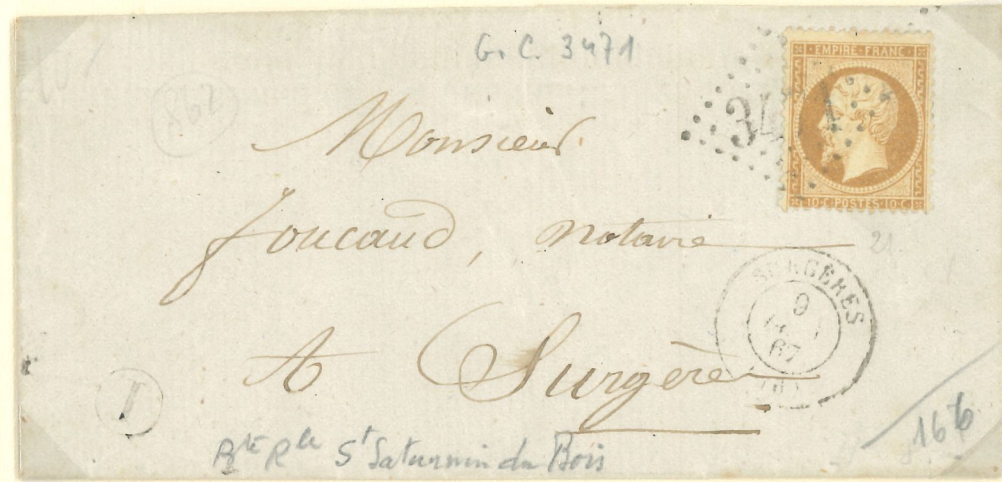 G. C. 3471
862
EMPIRE FRANC
34 1
10-C POSTES 10-C
Monsieur
Joucaud, notaire
21
SURGÈRES
9
67
A Surgères
I
166
Bte Rle St Saturnin du Bois